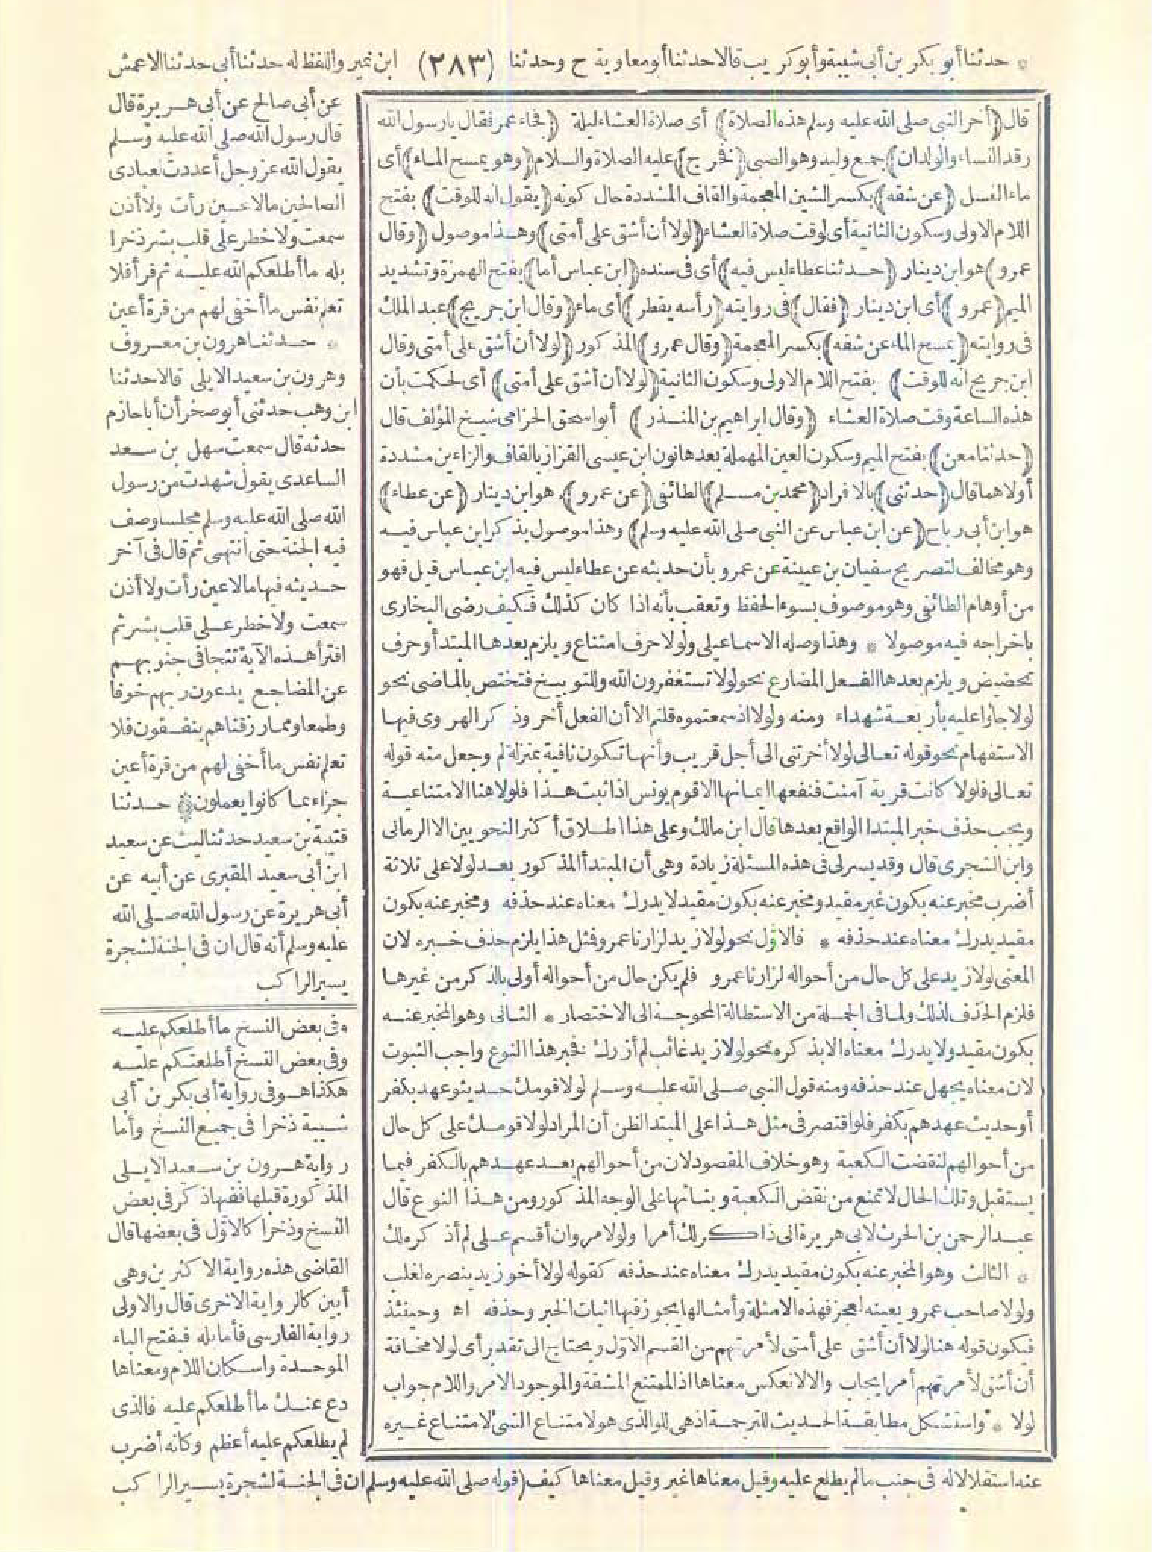 * حدثنا أبو بكر بن أبى شيبة وأبو كريب قالا حدثنا أبو معاوية ح وحدثنا (٢٨٣) ابن نمير واللفظ له حدثنا أبى حدثنا الاعمش
عن أبى صالح عن أبى هريرة قال
قال رسول الله صلى الله عليه وسلم
يقول الله عز وجل أعددت لعبادى
الصالحين مالا عين رأت ولا أذن
سمعت ولا خطر على قلب بشر ذخرا
بله ما أطلعكم الله عليه ثم قرأ فلا
تعلم نفس ما أخفى لهم من قرة أعين
* حدثنا هرون بن معروف
وهرون بن سعيد الايلى قالا حدثنا
ابن وهب حدثنى أبو صخر أن أبا حازم
حدثه قال سمعت سهل بن سعد
الساعدى يقول شهدت من رسول
الله صلى الله عليه وسلم مجلسا وصف
فيه الجنة حتى انتهى ثم قال فى آخر
حديثه فيها مالا عين رأت ولا أذن
سمعت ولا خطر على قلب بشر ثم
اقترأ هذه الآية تتجافى جنوبهم
عن المضاجع يدعون ربهم خوفا
وطمعا ومما رزقناهم ينفقون فلا
تعلم نفس ما أخفى لهم من قرة أعين
جزاء بما كانوا يعملون * حدثنا
قتيبة بن سعيد حدثنا ليث عن سعيد
ابن أبى سعيد المقبرى عن أبيه عن
أبى هريرة عن رسول الله صلى الله
عليه وسلم أنه قال ان فى الجنة لشجرة
يسير الراكب
قال (أخر النبى صلى الله عليه وسلم هذه الصلاة) أى صلاة العشاء ليلة (فجاء عمر فقال يارسول الله
رقد النساء والولدان) جمع وليد وهو الصبى (فخرج) عليه الصلاة والسلام (وهو يمسح الماء) أى
ماء الغسل (عن شقه) بكسر الشين المعجمة والقاف المشددة حال كونه (يقول انه للوقت) بفتح
اللام الاولى وسكون الثانية أى لوقت صلاة العشاء (لولا أن أشق على أمتى) وهذا موصول (وقال
عمرو) هو ابن دينار (حدثنا عطاء ليس فيه) أى فى سنده (ابن عباس أما) بفتح الهمزة وتشديد
الميم (عمرو) أى ابن دينار (فقال) فى روايته (رأسه يقطر) أى ماء (وقال ابن جريج) عبد الملك
فى روايته (يمسح الماء عن شقه) بكسر المعجمة (وقال عمرو) المذكور (لولا أن أشق على أمتى وقال
ابن جريج انه للوقت) بفتح اللام الاولى وسكون الثانية (لولا أن أشق على أمتى) أى لحكمت بأن
هذه الساعة وقت صلاة العشاء (وقال ابراهيم بن المنذر) أبو اسحق الحزامى شيخ المؤلف قال
(حدثنا معن) بفتح الميم وسكون العين المهملة بعدها نون ابن عيسى القزاز بالقاف والزاءين مشددة
أولاهما قال (حدثنى) بالافراد (محمد بن مسلم) الطائفى (عن عمرو) هو ابن دينار (عن عطاء)
هو ابن أبى رباح (عن ابن عباس عن النبى صلى الله عليه وسلم) وهذا موصول بذكر ابن عباس فيه
وهو مخالف لتصريح سفيان بن عيينة عن عمرو بأن حديثه عن عطاء ليس فيه ابن عباس قيل فهو
من أوهام الطائفى وهو موصوف بسوء الحفظ وتعقب بأنه اذا كان كذلك فكيف رضى البخارى
باخراجه فيه موصولا * وهذا وصله الاسماعيلى ولولا حرف امتناع ويلزم بعدها المبتدأ وحرف
تحضيض ويلزم بعدها الفعل المضارع نحو لولا تستغفرون الله وللتوبيخ فتختص بالماضى نحو
لولا جاؤا عليه بأربعة شهداء ومنه ولولا اذ سمعتموه قلتم الا أن الفعل أخر وذكر الهروى فيها
الاستفهام نحو قوله تعالى لولا أخرتنى الى أجل قريب وأنها تكون نافية بمنزلة لم وجعل منه قوله
تعالى فلولا كانت قرية آمنت فنفعها ايمانها الا قوم يونس اذا ثبت هذا فلولا هنا الامتناعية
ويجب حذف خبر المبتدا الواقع بعدها قال ابن مالك وعلى هذا اطلاق أكثر النحويين الا الرمانى
وابن الشجرى قال وقد يسر لى فى هذه المسئلة زيادة وهى أن المبتدأ المذكور بعد لولا على ثلاثة
أضرب مخبر عنه بكون غير مقيد ومخبر عنه بكون مقيد لا يدرك معناه عند حذفه ومخبر عنه بكون
مقيد يدرك معناه عند حذفه * فالاول نحو لولا زيد لزارنا عمرو فمثل هذا يلزم حذف خبره لان
المعنى لولا زيد على كل حال من أحواله لزارنا عمرو فلم يكن حال من أحواله أولى بالذكر من غيرها
فلزم الحذف لذلك ولما فى الجملة من الاستطالة المحوجة الى الاختصار * الثانى وهو المخبر عنه
بكون مقيد ولا يدرك معناه الا بذكره نحو لولا زيد غائب لم أزرك فخبر هذا النوع واجب الثبوت
لان معناه يجهل عند حذفه ومنه قول النبى صلى الله عليه وسلم لولا قومك حديثو عهد بكفر
أو حديث عهدهم بكفر فلو اقتصر فى مثل هذا على المبتدا لظن أن المراد لولا قومك على كل حال
من أحوالهم لنقضت الكعبة وهو خلاف المقصود لان من أحوالهم بعد عهدهم بالكفر فيما
يستقبل وتلك الحال لا تمنع من نقض الكعبة وبنائها على الوجه المذكور ومن هذا النوع قال
عبد الرحمن بن الحرث لابى هريرة انى ذاكر لك أمرا ولولا مروان أقسم على لم أذكره لك
* الثالث وهو المخبر عنه بكون مقيد يدرك معناه عند حذفه كقوله لولا أخو زيد ينصره لغلب
ولولا صاحب عمرو يعينه لعجز فهذه الامثلة وأمثالها يجوز فيها اثبات الخبر وحذفه اه وحينئذ
فيكون قوله هنا لولا أن أشق على أمتى لأمرتهم من القسم الاول ويحتاج الى تقدير أى لولا مخافة
أن أشق لأمرتهم أمر ايجاب والا لانعكس معناها اذ الممتنع المشقة والموجود الامر واللام جواب
لولا * واستشكل مطابقة الحديث للترجمة اذ هى للو الذى هو لامتناع الشئ لامتناع غيره
وفى بعض النسخ ما أطلعكم عليه
وفى بعض النسخ أطلعتكم عليه
هكذا هو فى رواية أبى بكر بن أبى
شيبة ذخرا فى جميع النسخ وأما
رواية هرون بن سعيد الايلى
المذكورة قبلها ففيها ذكر فى بعض
النسخ وذخرا كالاول فى بعضها قال
القاضى هذه رواية الاكثرين وهى
أبين كالرواية الاخرى قال والاولى
رواية الفارسى فأما بله فبفتح الباء
الموحدة واسكان اللام ومعناها
دع عنك ما أطلعكم عليه فالذى
لم يطلعكم عليه أعظم وكأنه أضرب
عنه استقلالا له فى جنب مالم يطلع عليه وقيل معناها غير وقيل معناها كيف (قوله صلى الله عليه وسلم ان فى الجنة لشجرة يسير الراكب